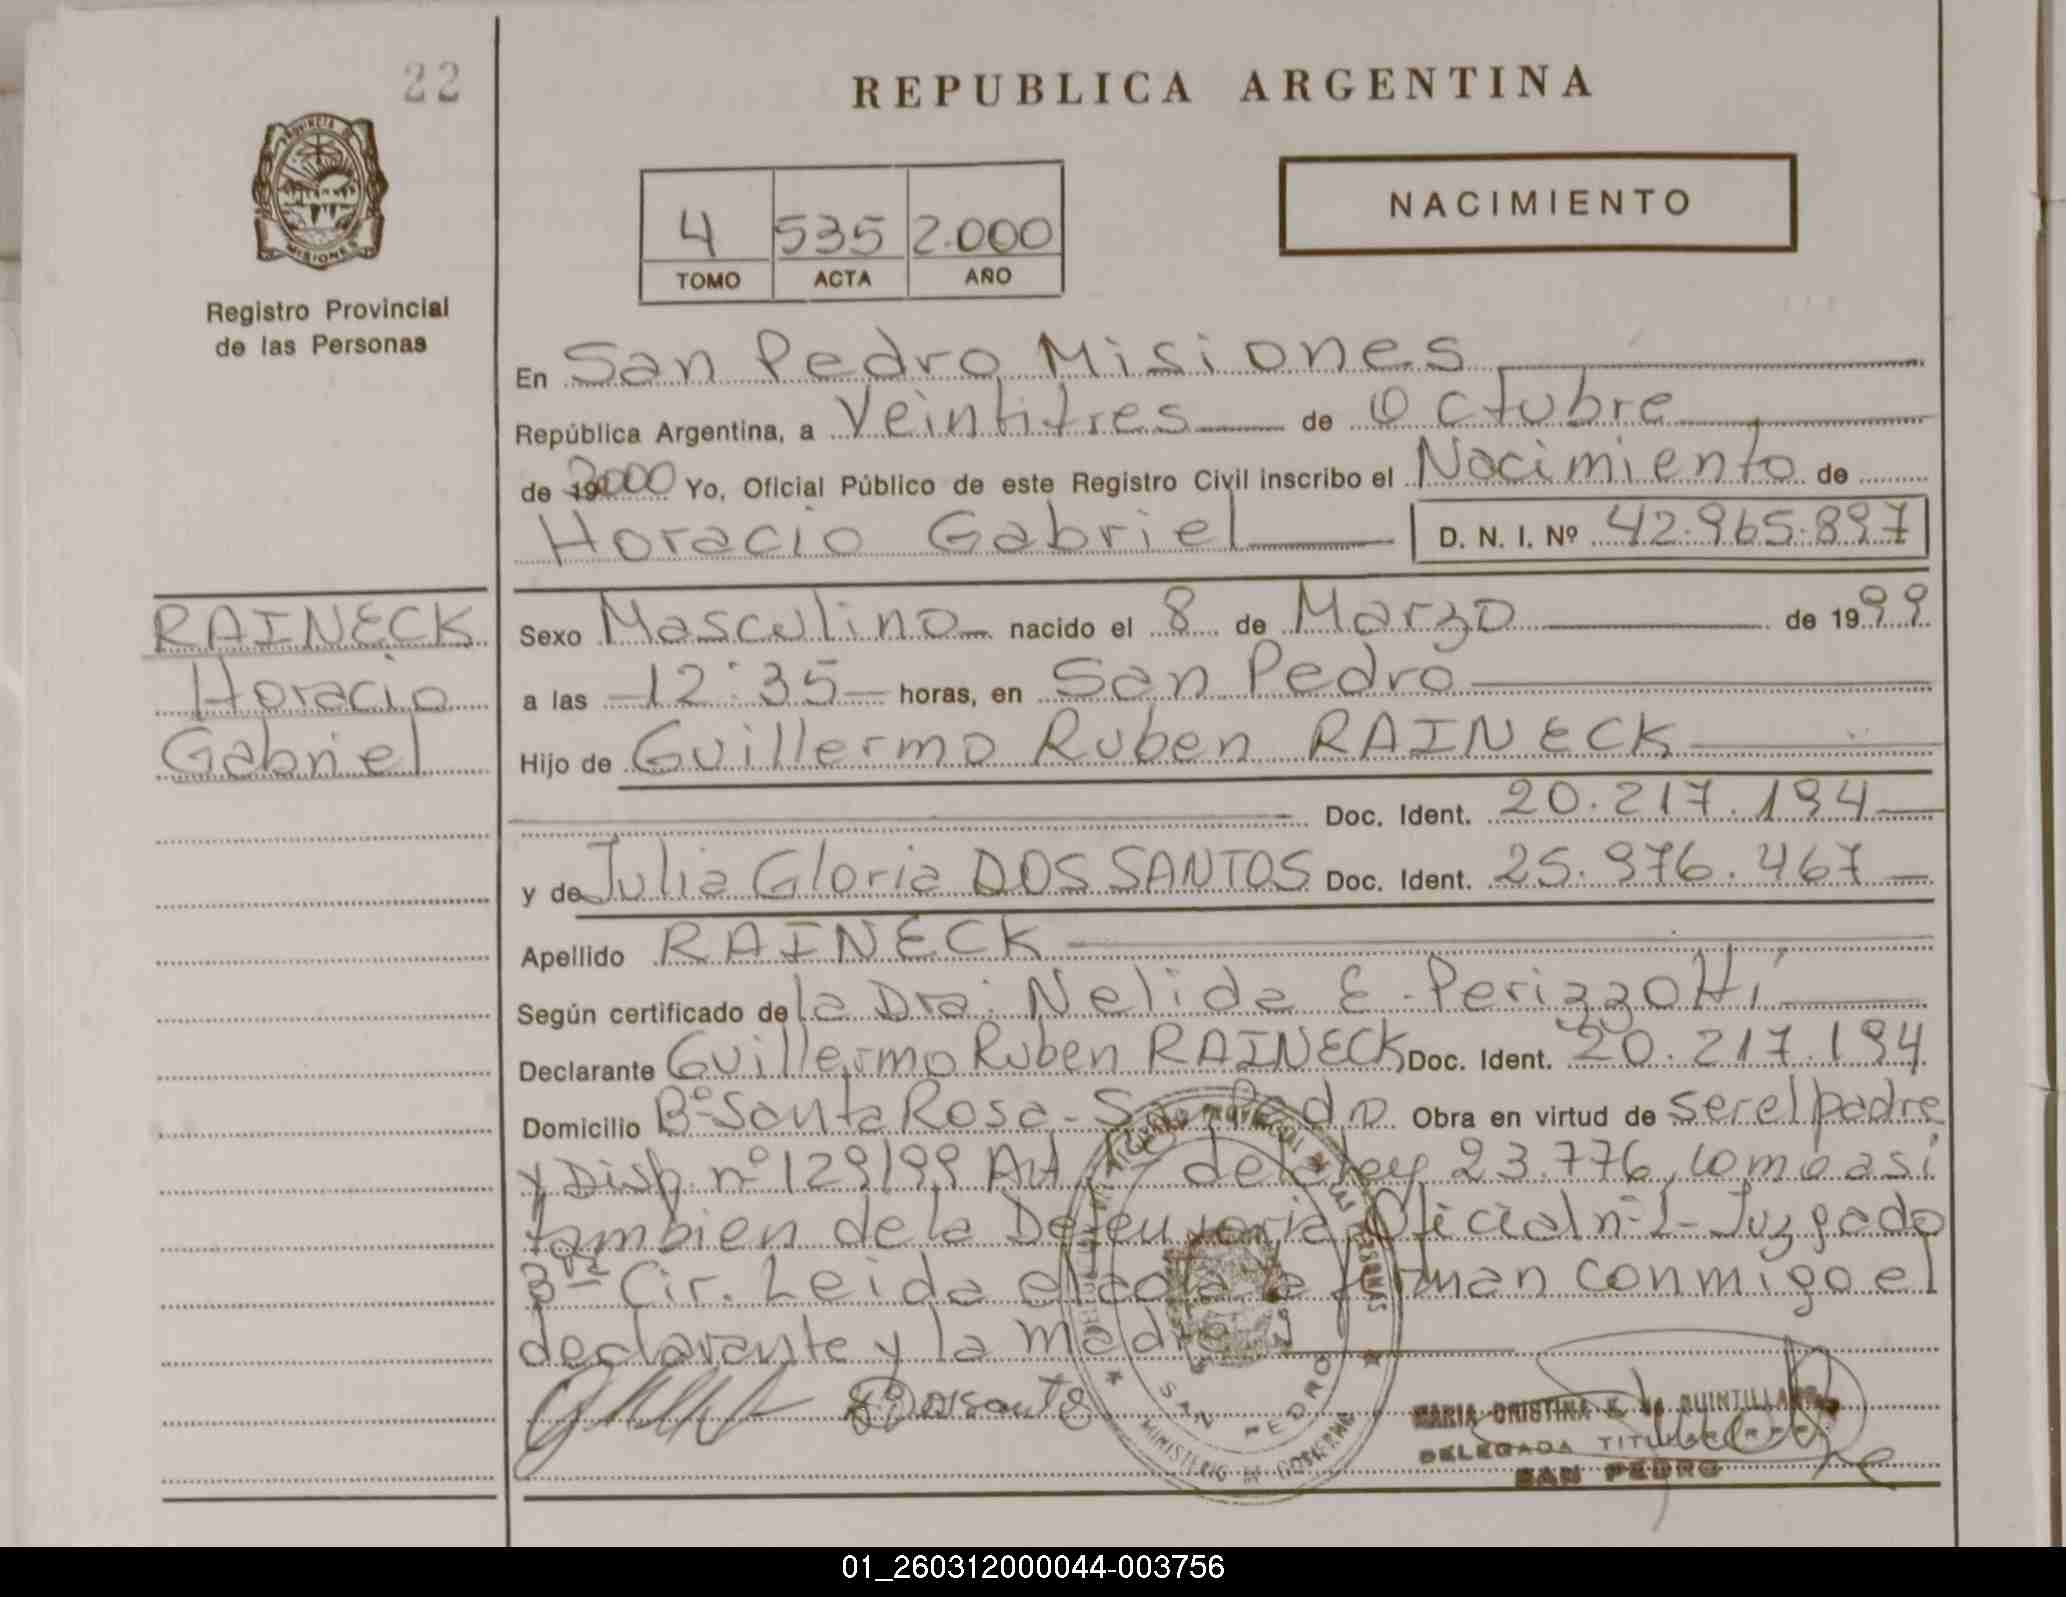 22
REPUBLICA ARGENTINA
PROVINCIA DE
MISIONES
NACIMIENTO
4 535 2.000
TOMO ACTA AÑO
Registro Provincial
de las Personas
En San Pedro Misiones
República Argentina, a Veintitres de Octubre
de 2000 Yo, Oficial Público de este Registro Civil inscribo el Nacimiento de
Horacio Gabriel D. N. I. Nº 42.965.897
RAINECK
Horacio
Gabriel
Sexo Masculino nacido el 8 de Marzo de 1999
a las 12:35 horas, en San Pedro
Hijo de Guillermo Ruben RAINECK
Doc. Ident. 20.217.194
y de Julia Gloria DOS SANTOS Doc. Ident. 25.976.467
Apellido RAINECK
Según certificado de la Dra. Nelida E. Perizzotti
Declarante Guillermo Ruben RAINECK Doc. Ident. 20.217.194
Domicilio Bº Santa Rosa - San Pedro Obra en virtud de ser el padre
y Disp. nº 129/99 Art de la ley 23.776, como asi
tambien de la Defensoria Oficial nº 1 - Juzgado
3ra Cir. Leida el acta la firman conmigo el
declarante y la madre
Dos santos
MARIA CRISTINA K. de QUINTILLAN
DELEGADA TITULAR
SAN PEDRO
REGISTRO PROVINCIAL DE LAS PERSONAS
SAN PEDRO
MINISTERIO DE GOBIERNO
01_260312000044-003756